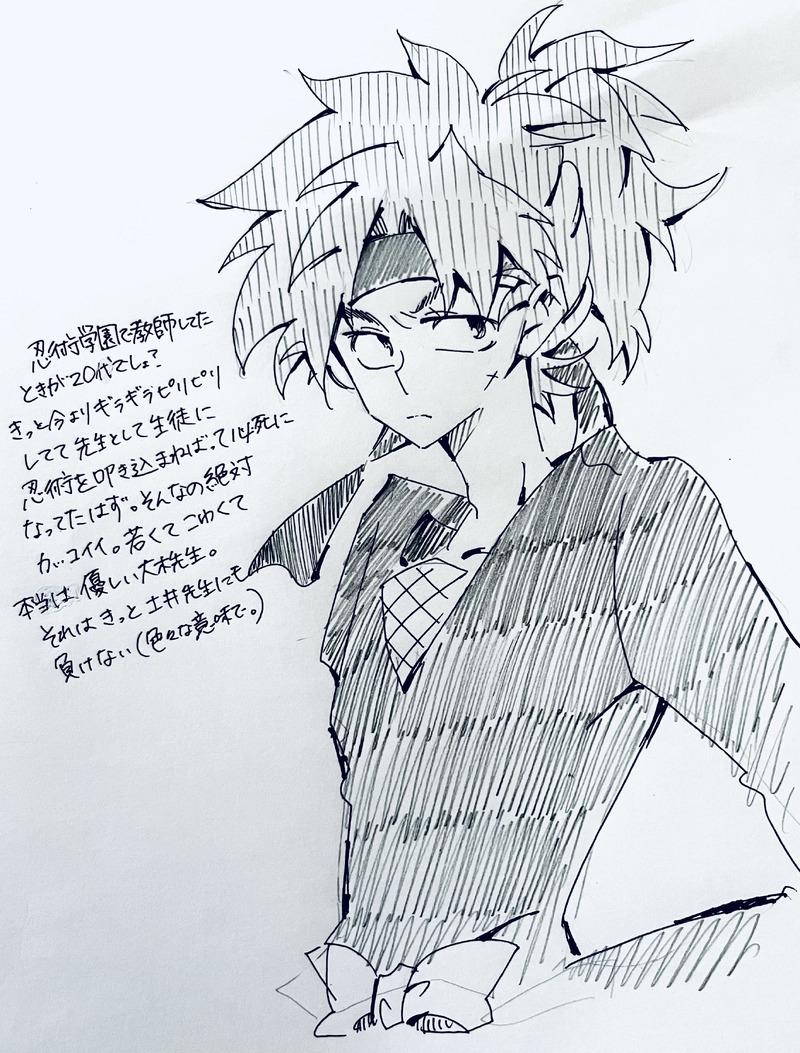 忍術学園で教師してた
ときが20代でしょ?
きっと今よりギラギラピリピリ
してて先生として生徒に
忍術を叩き込まねばって必死に
なってたはず。そんなの絶対
カッコイイ。若くてこわくて
本当は優しい大木先生。
それはきっと土井先生にも
負けない(色々な意味で。)